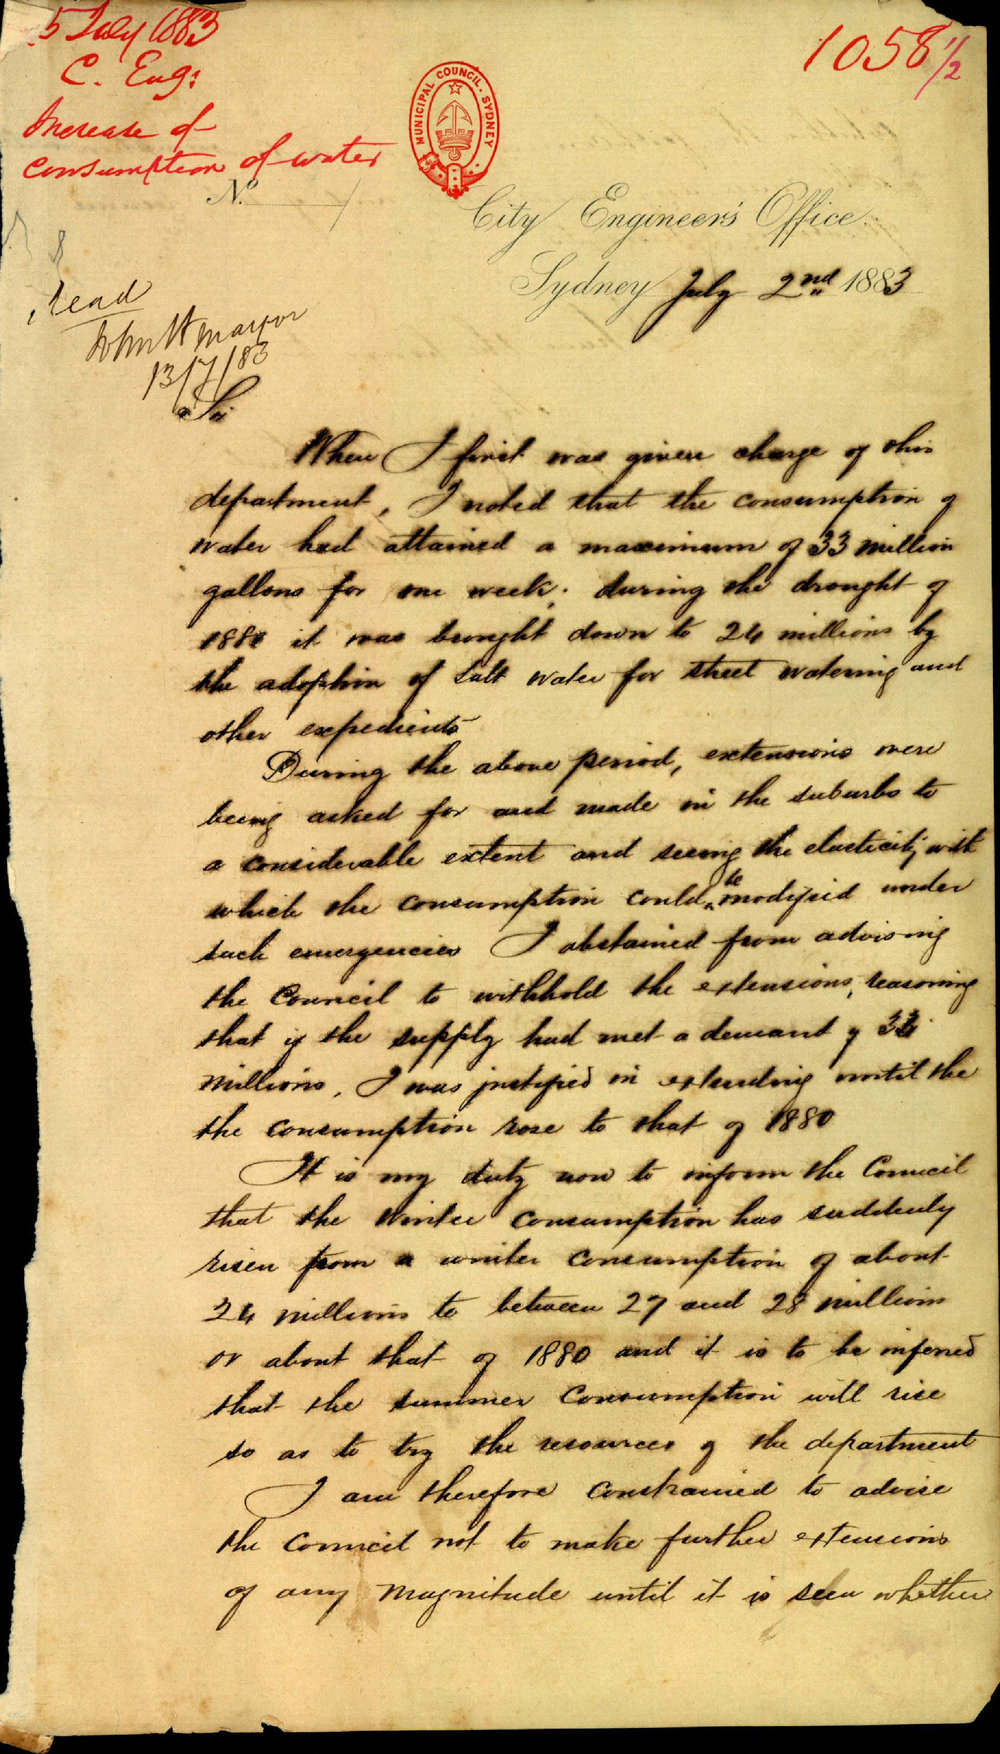 5 July 1883
1058 1/2
C. Eng:
Increase of
consumption of water
MUNICIPAL COUNCIL. SYDNEY
No.
City Engineer's Office
Sydney July 2nd 1883
Read
John H Mayor
13/7/83
Sir
When I first was given charge of this
department, I noted that the consumption of
water had attained a maximum of 33 million
gallons for one week; during the drought of
1880 it was brought down to 24 millions by
the adoption of Salt water for street watering and
other expedients
During the above period, extensions were
being asked for and made in the suburbs to
a considerable extent and seeing the elasticity with
which the consumption could be modified under
such emergencies I abstained from advising
the Council to withhold the extensions, reasoning
that if the supply had met a demand of 33
millions, I was justified in extending until the
the consumption rose to that of 1880
It is my duty now to inform the Council
that the Winter consumption has suddenly
risen from a winter consumption of about
24 millions to between 27 and 28 millions
or about that of 1880 and it is to be inferred
that the summer Consumption will rise
so as to try the resources of the department
I am therefore constrained to advise
the Council not to make further extensions
of any magnitude until it is seen whether